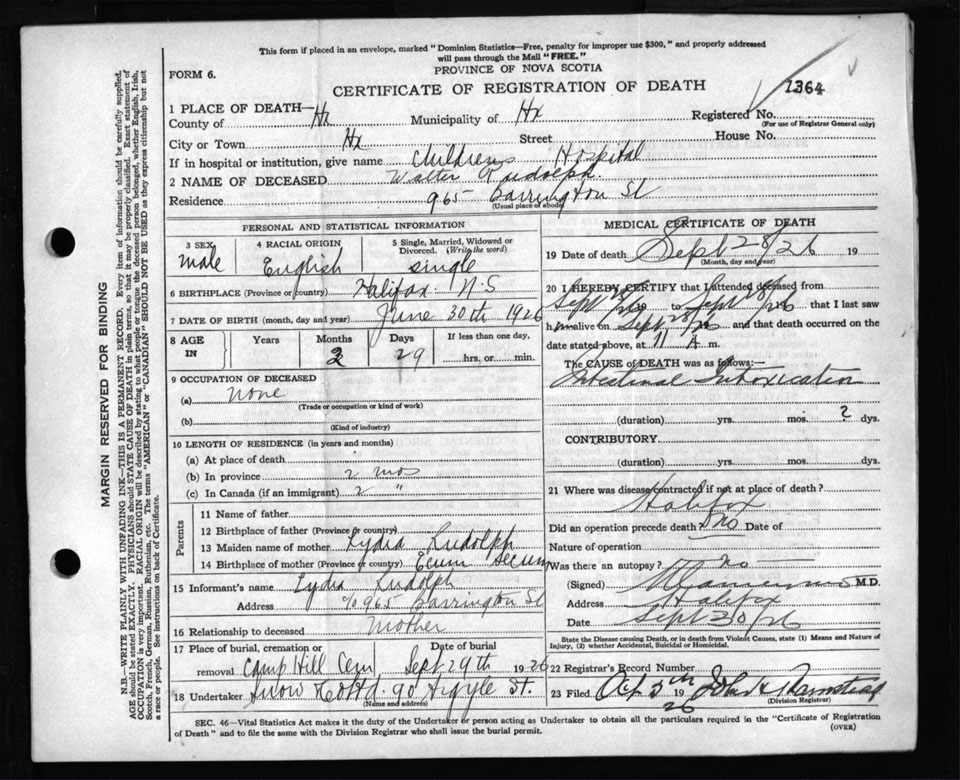 This form if placed in an envelope, marked "Dominion Statistics—Free, penalty for improper use $300," and properly addressed
will pass through the Mail "FREE."
PROVINCE OF NOVA SCOTIA
FORM 6.
CERTIFICATE OF REGISTRATION OF DEATH
1364
1 PLACE OF DEATH—
County of Hx Municipality of Hx Registered No.
(For use of Registrar General only)
City or Town Hx Street House No.
If in hospital or institution, give name Childrens Hospital
2 NAME OF DECEASED Walter Rudolph.
Residence 965 Barrington St
(Usual place of abode)
PERSONAL AND STATISTICAL INFORMATION
3 SEX 4 RACIAL ORIGIN 5 Single, Married, Widowed or Divorced. (Write the word)
Male English Single
6 BIRTHPLACE (Province or country) Halifax N.S
7 DATE OF BIRTH (month, day and year) June 30th 1926
8 AGE IN Years Months Days If less than one day,
2 29 hrs. or min.
9 OCCUPATION OF DECEASED
(a) None
(Trade or occupation or kind of work)
(b)
(Kind of industry)
10 LENGTH OF RESIDENCE (in years and months)
(a) At place of death
(b) In province 2 mos
(c) In Canada (if an immigrant) 2 "
Parents
11 Name of father
12 Birthplace of father (Province or country)
13 Maiden name of mother Lydia Rudolph
14 Birthplace of mother (Province or country) Ecum Secum
15 Informant's name Lydia Rudolph
Address c/o 965 Barrington St
16 Relationship to deceased Mother
17 Place of burial, cremation or removal Date of burial
Camp Hill Cem Sept 29th 1926
18 Undertaker Snow & Co Ltd. 90 Argyle St.
(Name and address)
MEDICAL CERTIFICATE OF DEATH
19 Date of death Sept 28/26 19
(Month, day and year)
20 I HEREBY CERTIFY that I attended deceased from
Sept 19 to Sept 28/26 that I last saw
him alive on Sept 28/26 and that death occurred on
date stated above, at 11 A. m.
The CAUSE of DEATH was as follows:—
Intestinal Intoxication
(duration) yrs. mos. 2 dys.
CONTRIBUTORY
(duration) yrs. mos. dys.
21 Where was disease contracted if not at place of death?
Halifax
Did an operation precede death? No Date of
Nature of operation
Was there an autopsy? no
(Signed) M.D.
Address Halifax
Date Sept 30/26
State the Disease causing Death, or in death from Violent Causes, state (1) Means and Nature of
Injury, and (2) whether Accidental, Suicidal or Homicidal.
22 Registrar's Record Number
23 Filed Oct 5th 1926 John A
(Division Registrar)
SEC. 46—Vital Statistics Act makes it the duty of the Undertaker or person acting as Undertaker to obtain all the particulars required in the "Certificate of Registration
of Death" and to file the same with the Division Registrar who shall issue the burial permit.
(OVER)
MARGIN RESERVED FOR BINDING
N.B.—WRITE PLAINLY WITH UNFADING INK—THIS IS A PERMANENT RECORD. Every item of information should be carefully supplied.
AGE should be stated EXACTLY. PHYSICIANS should STATE CAUSE OF DEATH in plain terms, so that it may be properly classified. Exact statement of
OCCUPATION is very important. RACIAL ORIGIN will be described by stating to what people or tongue the deceased person belonged, whether English, Irish,
Scotch, French, German, Russian, Ruthenian, etc. The terms "AMERICAN" or "CANADIAN" SHOULD NOT BE USED as they express citizenship but not
a race or people. See instructions on back of Certificate.